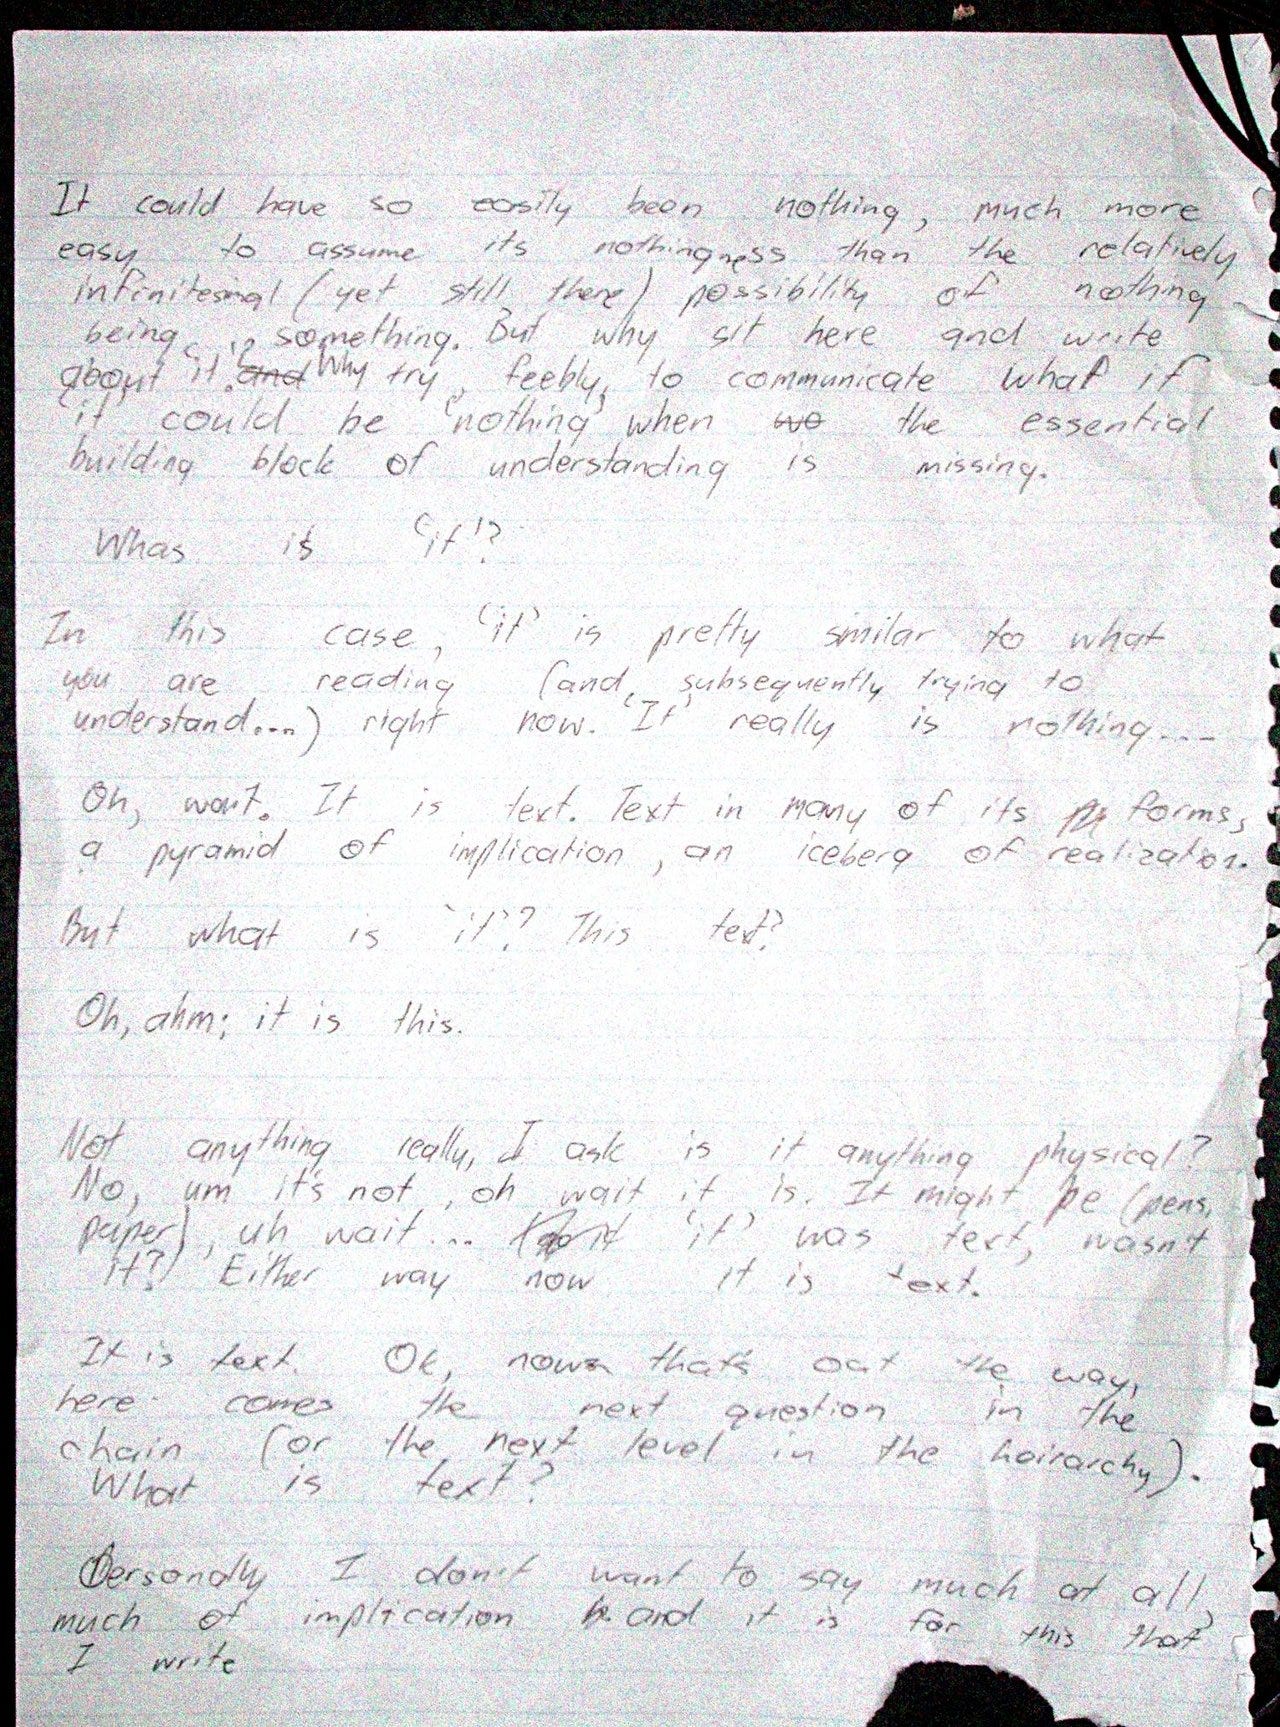 It could have so easily been nothing, much more
easy to assume its nothingness than the relatively
infinitesimal (yet still there) possibility of nothing
being something. But why sit here and write
about 'it'? and Why try, feebly, to communicate what if
'it' could be 'nothing' when we the essential
building block of understanding is missing.
Whas is 'it'?
In this case, 'it' is pretty similar to what
you are reading (and, subsequently trying to
understand...) right now. 'It' really is nothing...
Oh, wait. It is text. Text in many of its forms,
a pyramid of implication, an iceberg of realization.
But what is 'it'? This text?
Oh, ahm; it is this.
Not anything really, I ask is it anything physical?
No, um it's not, oh wait it is. It might be (pens,
paper), uh wait... 'it' was text, wasn't
it? Either way now it is text.
It is text. Ok, now that's out the way,
here comes the next question in the
chain (or the next level in the hairarchy).
What is text?
Personally I don't want to say much at all,
much of implication and it is for this that
I write